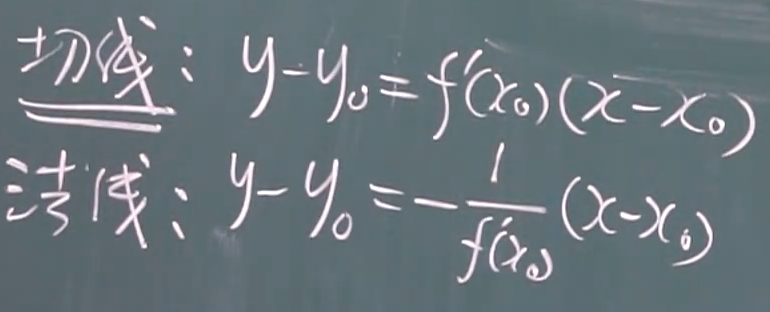 切线: y-y₀=f'(x₀)(x-x₀)
法线: y-y₀=-1/f'(x₀)(x-x₀)